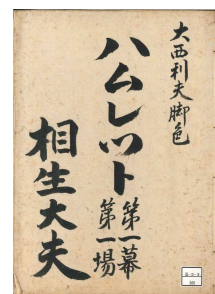 大西利夫脚色
ハムレット 第一幕
第一場
相生大夫